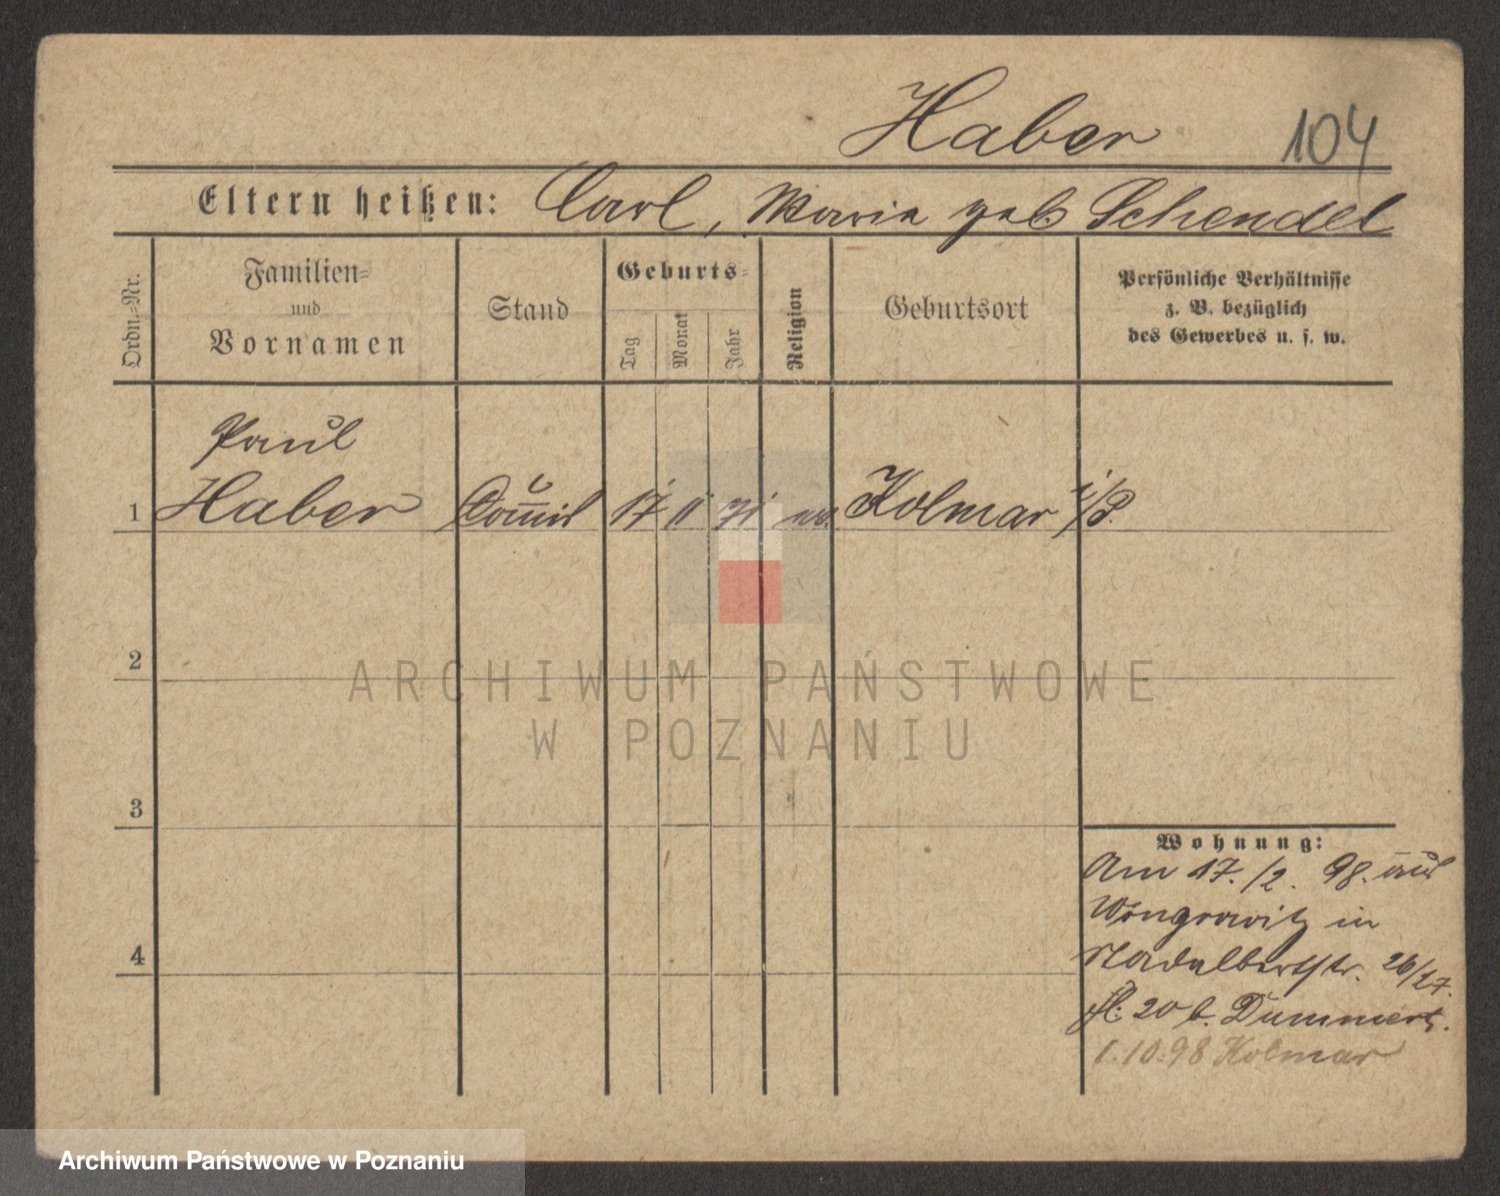 Haber 104
Eltern heißen: Carl, Maria geb Schendel
Ordn.-Nr.
Familien-
und
Vornamen
Stand
Geburts-
Tag
Monat
Jahr
Religion
Geburtsort
Persönliche Verhältnisse
z. B. bezüglich
des Gewerbes u. s. w.
Paul
1 Haber 17 11 71 Kolmar i/P.
2
ARCHIWUM PAŃSTWOWE
W POZNANIU
3
Wohnung:
Am 17./2. 98. aus
Wongrowitz in
26/27.
20 b. Dummert.
4
1.10.98 Kolmar
Archiwum Państwowe w Poznaniu